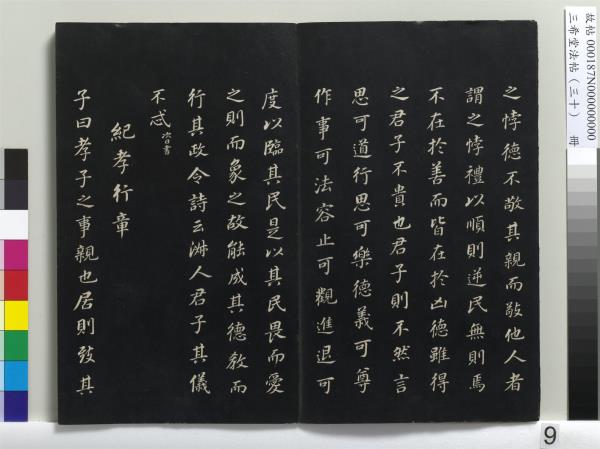 之悖德不敬其親而敬他人者
謂之悖禮以順則逆民無則焉
不在於善而皆在於凶德雖得
之君子不貴也君子則不然言
思可道行思可樂德義可尊
作事可法容止可觀進退可
度以臨其民是以其民畏而愛
之則而象之故能成其德教而
行其政令詩云淑人君子其儀
不忒
紀孝行章
子曰孝子之事親也居則致其
故帖 000187N000000000
三希堂法帖(三十) 冊
9